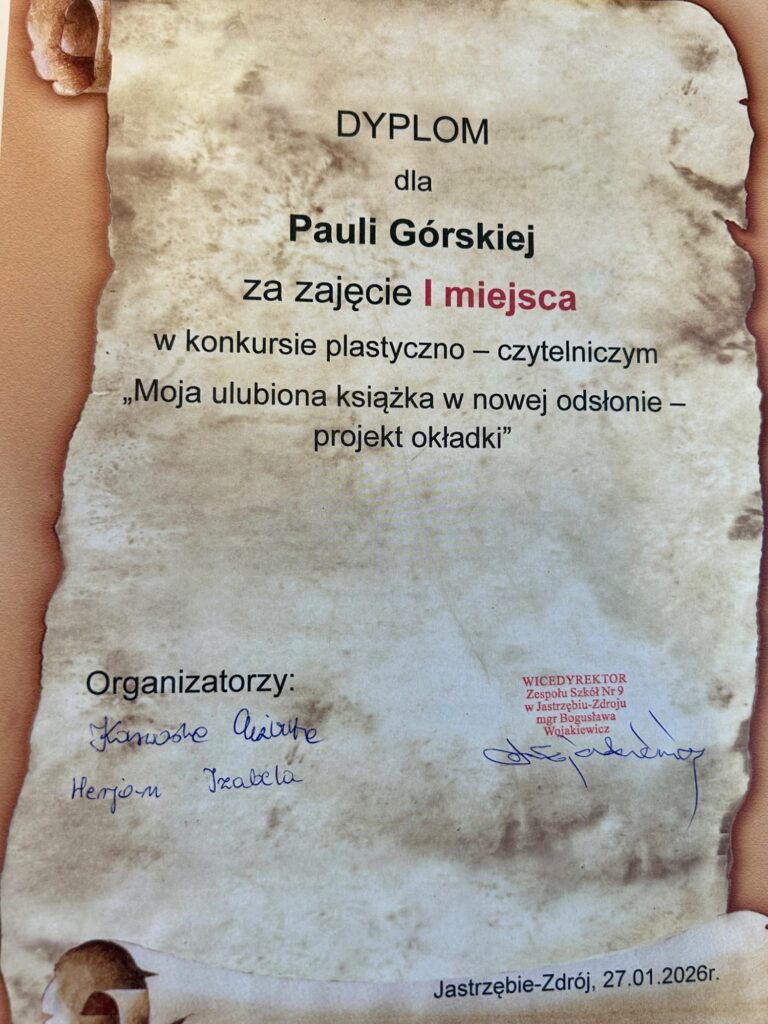 DYPLOM
dla
Pauli Górskiej
za zajęcie I miejsca
w konkursie plastyczno – czytelniczym
„Moja ulubiona książka w nowej odsłonie –
projekt okładki”
Organizatorzy:
Herjan Izabela
WICEDYREKTOR
Zespołu Szkół Nr 9
w Jastrzębiu-Zdroju
mgr Bogusława
Wojakiewicz
Jastrzębie-Zdrój, 27.01.2026r.